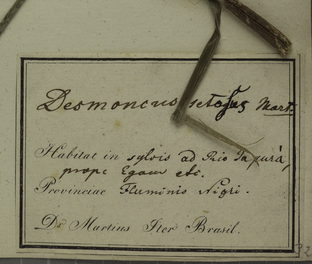 Desmoncus setosus Mart.
Habitat in sylvis ad Rio Japurá,
prope Egam etc.
Provinciae Fluminis Nigri.
Dr Martius Iter Brasil.